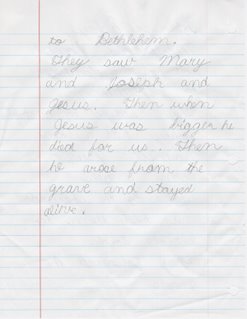 to Bethlehem.
They saw Mary
and Joseph and
Jesus. Then when
Jesus was bigger he
died for us. Then
he arose from the
grave and stayed
alive.